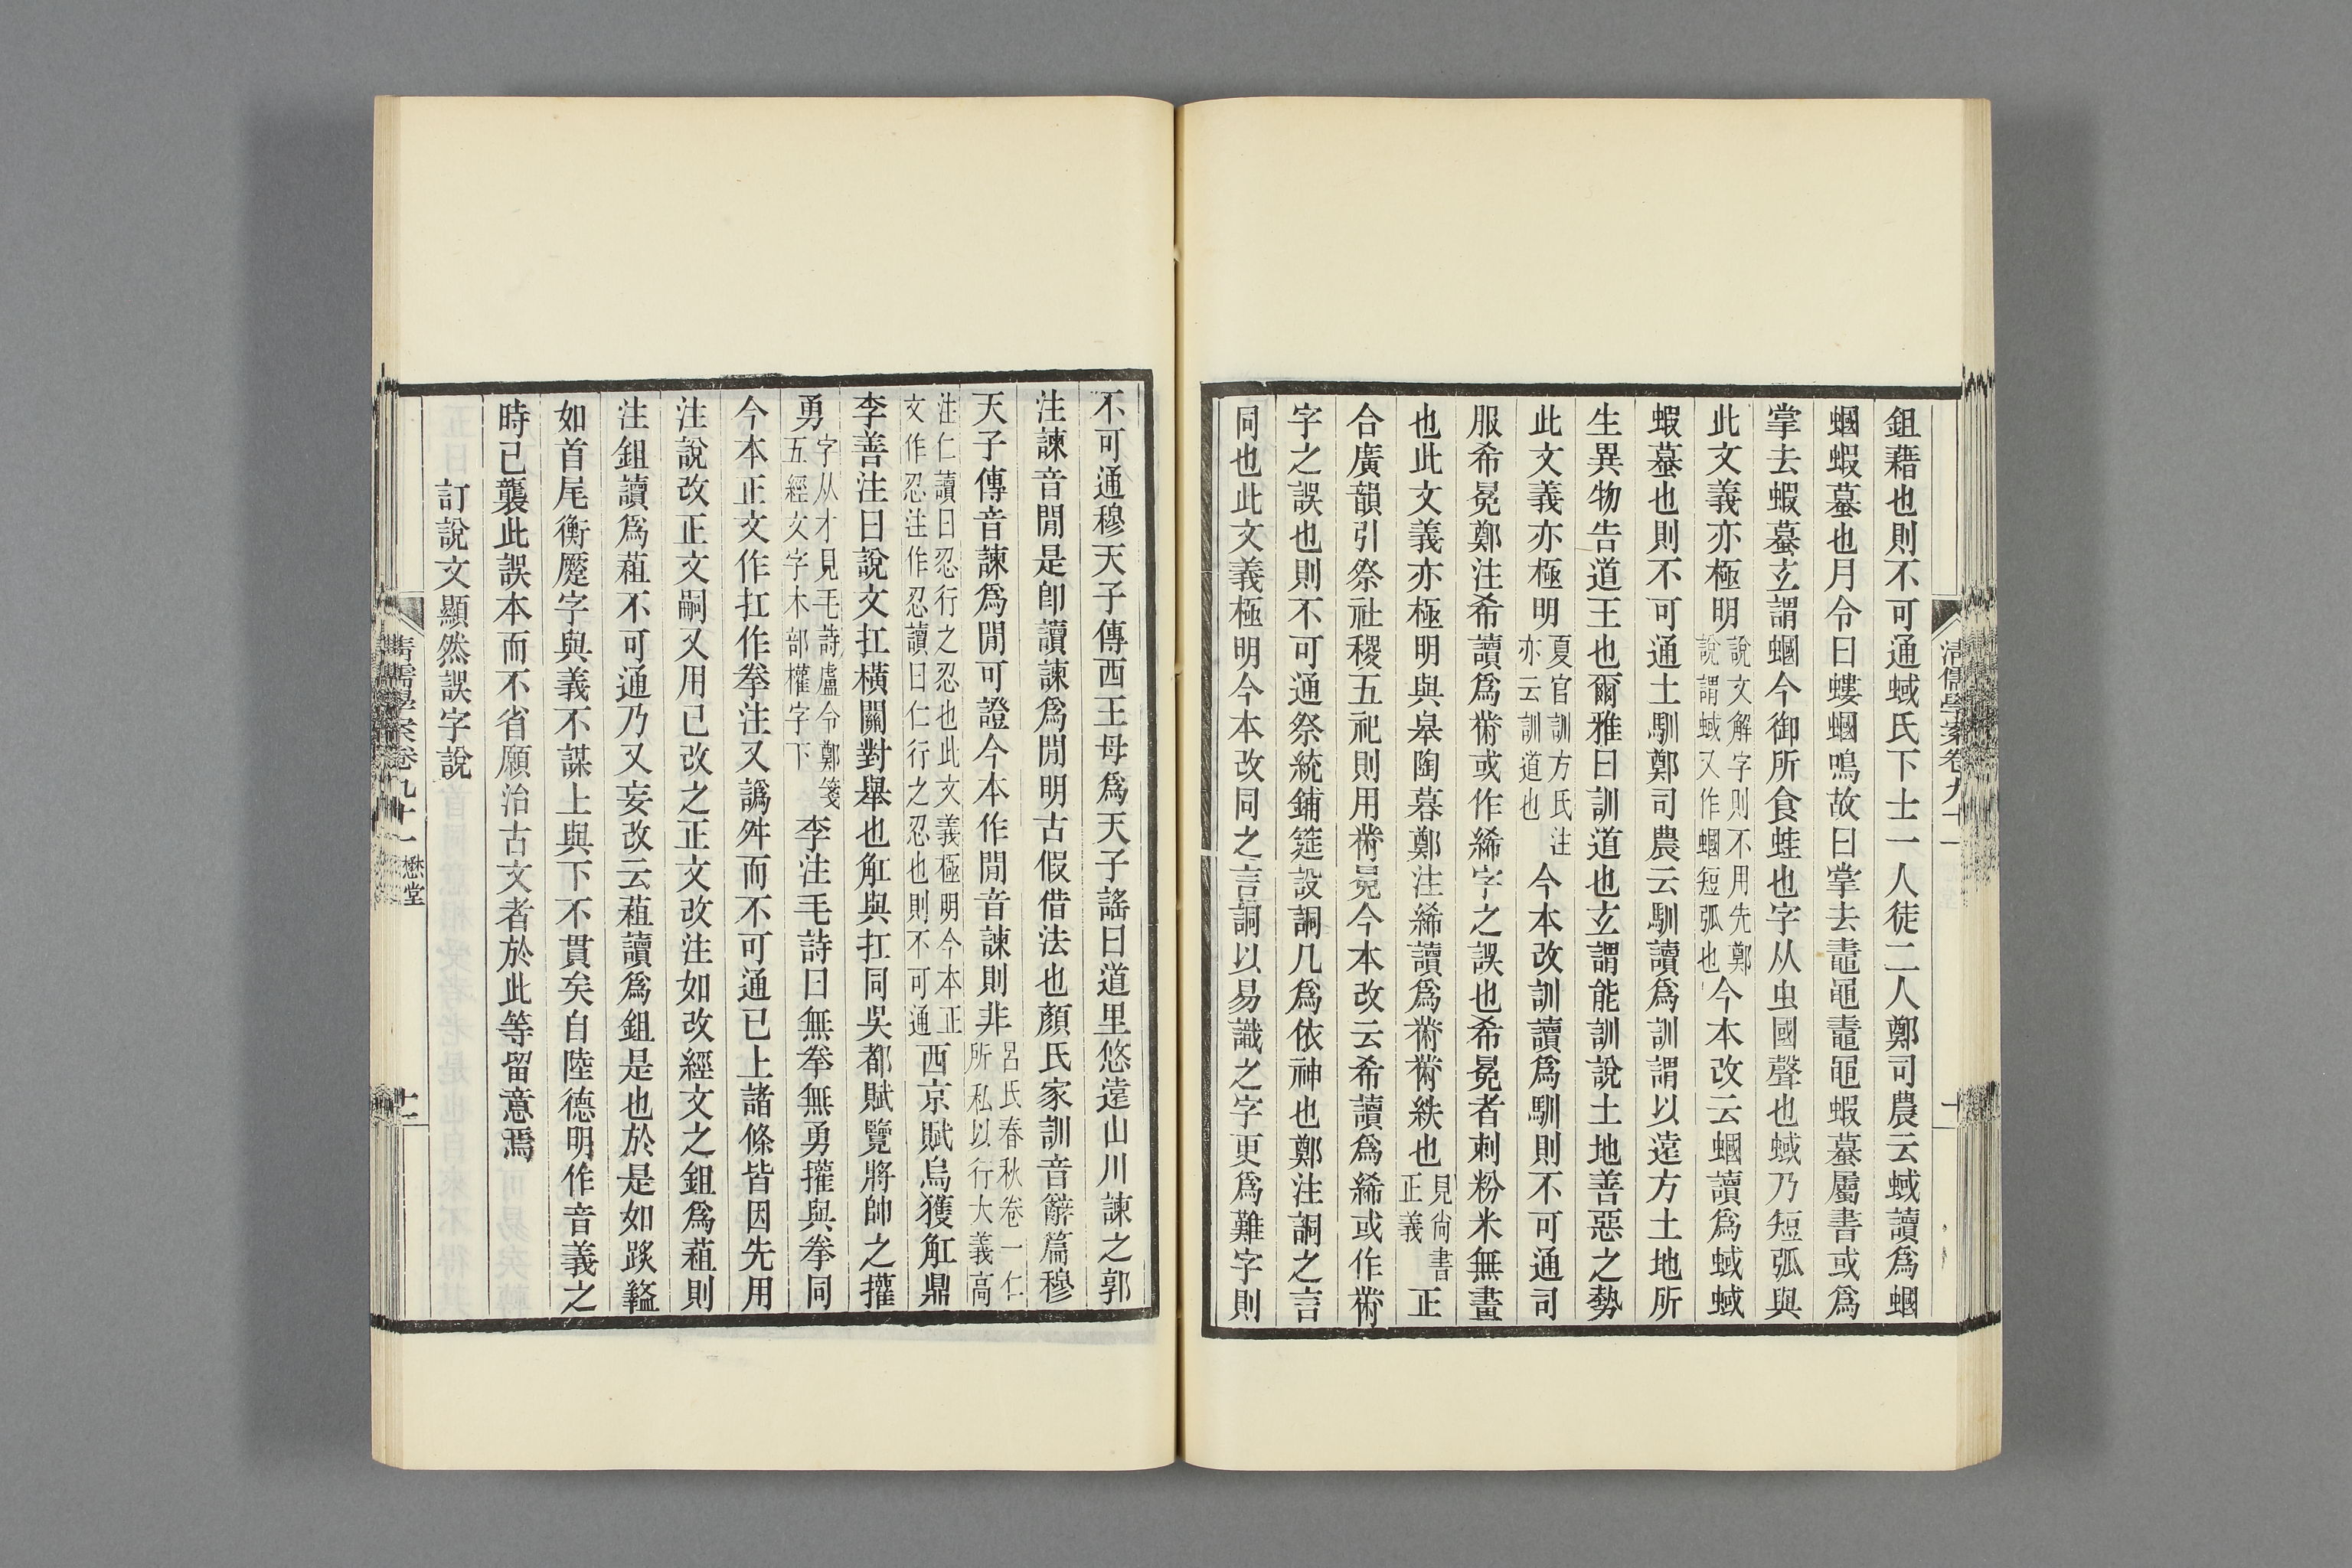 鉏藉也則不可通蜮氏下士一人徒二人鄭司農云蜮讀爲蟈
蟈蝦蟇也月令曰螻蟈鳴故曰掌去鼃黽鼃黽蝦蟇屬書或爲
掌去蝦蟇玄謂蟈今御所食蛙也字从虫國聲也蜮乃短弧與
此文義亦極明說文解字則不用先鄭說謂蜮又作蟈短弧也今本改云蟈讀爲蜮蜮
蝦蟇也則不可通土馴鄭司農云馴讀爲訓謂以遠方土地所
生異物告道王也爾雅曰訓道也玄謂能訓說土地善惡之勢
此文義亦極明夏官訓方氏注亦云訓道也今本改訓讀爲馴則不可通司
服希冕鄭注希讀爲黹或作絺字之誤也希冕者刺粉米無畫
也此文義亦極明與皋陶暮鄭注絺讀爲黹黹紩也見尚書正義正
合廣韻引祭社稷五祀則用黹冕今本改云希讀爲絺或作黹
字之誤也則不可通祭統鋪筵設詷几爲依神也鄭注詷之言
同也此文義極明今本改同之言詷以易識之字更爲難字則
清儒學案卷九十一
不可通穆天子傳西王母爲天子謠曰道里悠遠山川諫之郭
注諫音閒是卽讀諫爲閒明古假借法也顏氏家訓音辭篇穆
天子傳音諫爲閒可證今本作閒音諫則非呂氏春秋卷一仁所私以行大義高
注仁讀曰忍行之忍也此文義極明今本正文作忍注作忍讀曰仁行之忍也則不可通西京賦烏獲舡鼎
李善注曰說文扛橫關對舉也舡與扛同吳都賦覽將帥之㩲
勇字从才見毛詩盧令鄭箋五經文字木部權字下李注毛詩曰無拳無勇㩲與拳同
今本正文作扛作拳注又譌舛而不可通已上諸條皆因先用
注說改正文嗣又用已改之正文改注如改經文之鉏爲蒩則
注鉏讀爲蒩不可通乃又妄改云蒩讀爲鉏是也於是如跋盭
如首尾衡蹷字與義不謀上與下不貫矣自陸德明作音義之
時已襲此誤本而不省願治古文者於此等留意焉
訂說文顯然誤字說
清儒學案卷九十一 懋堂 十一